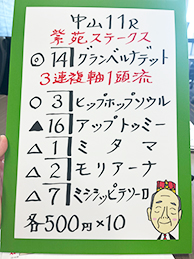 中山11R
紫苑ステークス
◎14グランベルナデット
3連複軸1頭流
○3ヒップホップソウル
▲16アップトゥミー
△1ミタマ
△2モリアーナ
△7ミシシッピテソーロ
各500円×10